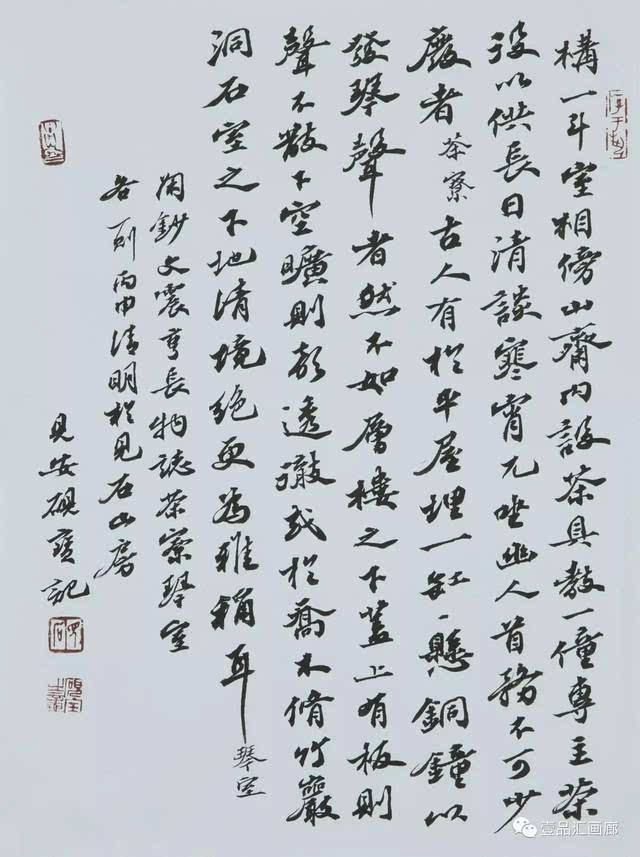 構一斗室相傍山齋內設茶具教一僮專主茶
役以供長日清談寒宵兀坐幽人首務不可少
廢者茶寮古人有於平屋埋一缸、懸銅鐘以
發琴聲者然不如層樓之下蓋上有板則
聲不散下空曠則聲透澈或於喬木脩竹巖
洞石室之下地清境絕更為雅稱耳琴室
閑鈔文震亨長物誌茶寮琴室
各一則丙申清明於見石山房
見安硯寶記
壹品汇画廊